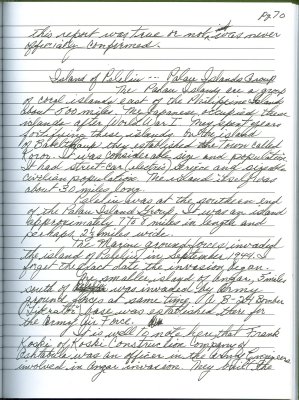 Pg 70
this report was true or not, it was never
officially confirmed.
Island of Peleliu --- Palau Islands Group
The Palau Islands are a group
of coral islands east of the Philippine Islands
about 500 miles. The Japanese, occupying these
islands after World War I. They spent years
fortifying these islands. On the island
of they established the town called
Koror. It was considerable size and population.
It had street-car (electric) service and sizeable
civilian population. The island itself was
about 30 miles long.
Peleliu was at the southern end
of the Palau Island Group. It was an island
approximately 7 to 8 miles in length and
perhaps 2½ miles wide.
The Marine ground forces invaded
the island of Peleliu in September 1944. I
forget the exact date the invasion began.
The smaller island of Angar, 5 miles
south of was invaded by Army
ground forces at same time. A B-24 Bomber
(Liberator) base was established there for
the Army Air Force.
It is well to note here that Frank
Koski of Koski Construction Company of
Ashtabula was an officer in the Army Engineers
involved in Angar invasion. They built the